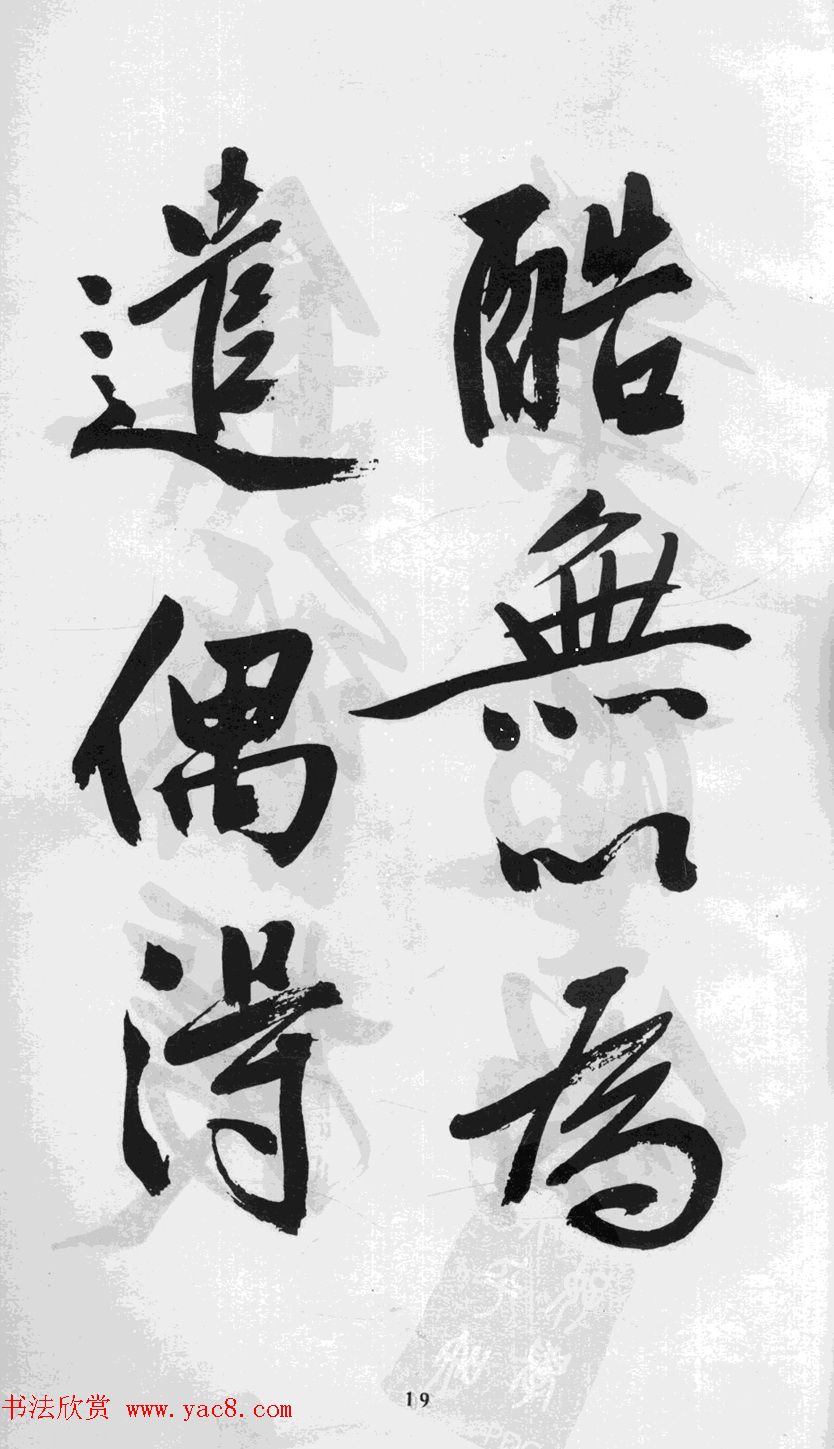 酷無以為
遣偶得
19
书法欣赏 www.yac8.com